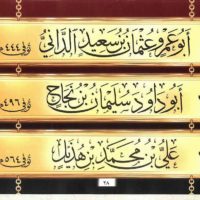 أبو عمرو عثمان بن سعيد الداني توفي ٤٤٤هـ
أبو داود سليمان بن نجاح توفي ٤٩٦هـ
علي بن محمد بن هذيل توفي ٥٦٤هـ
٢٨